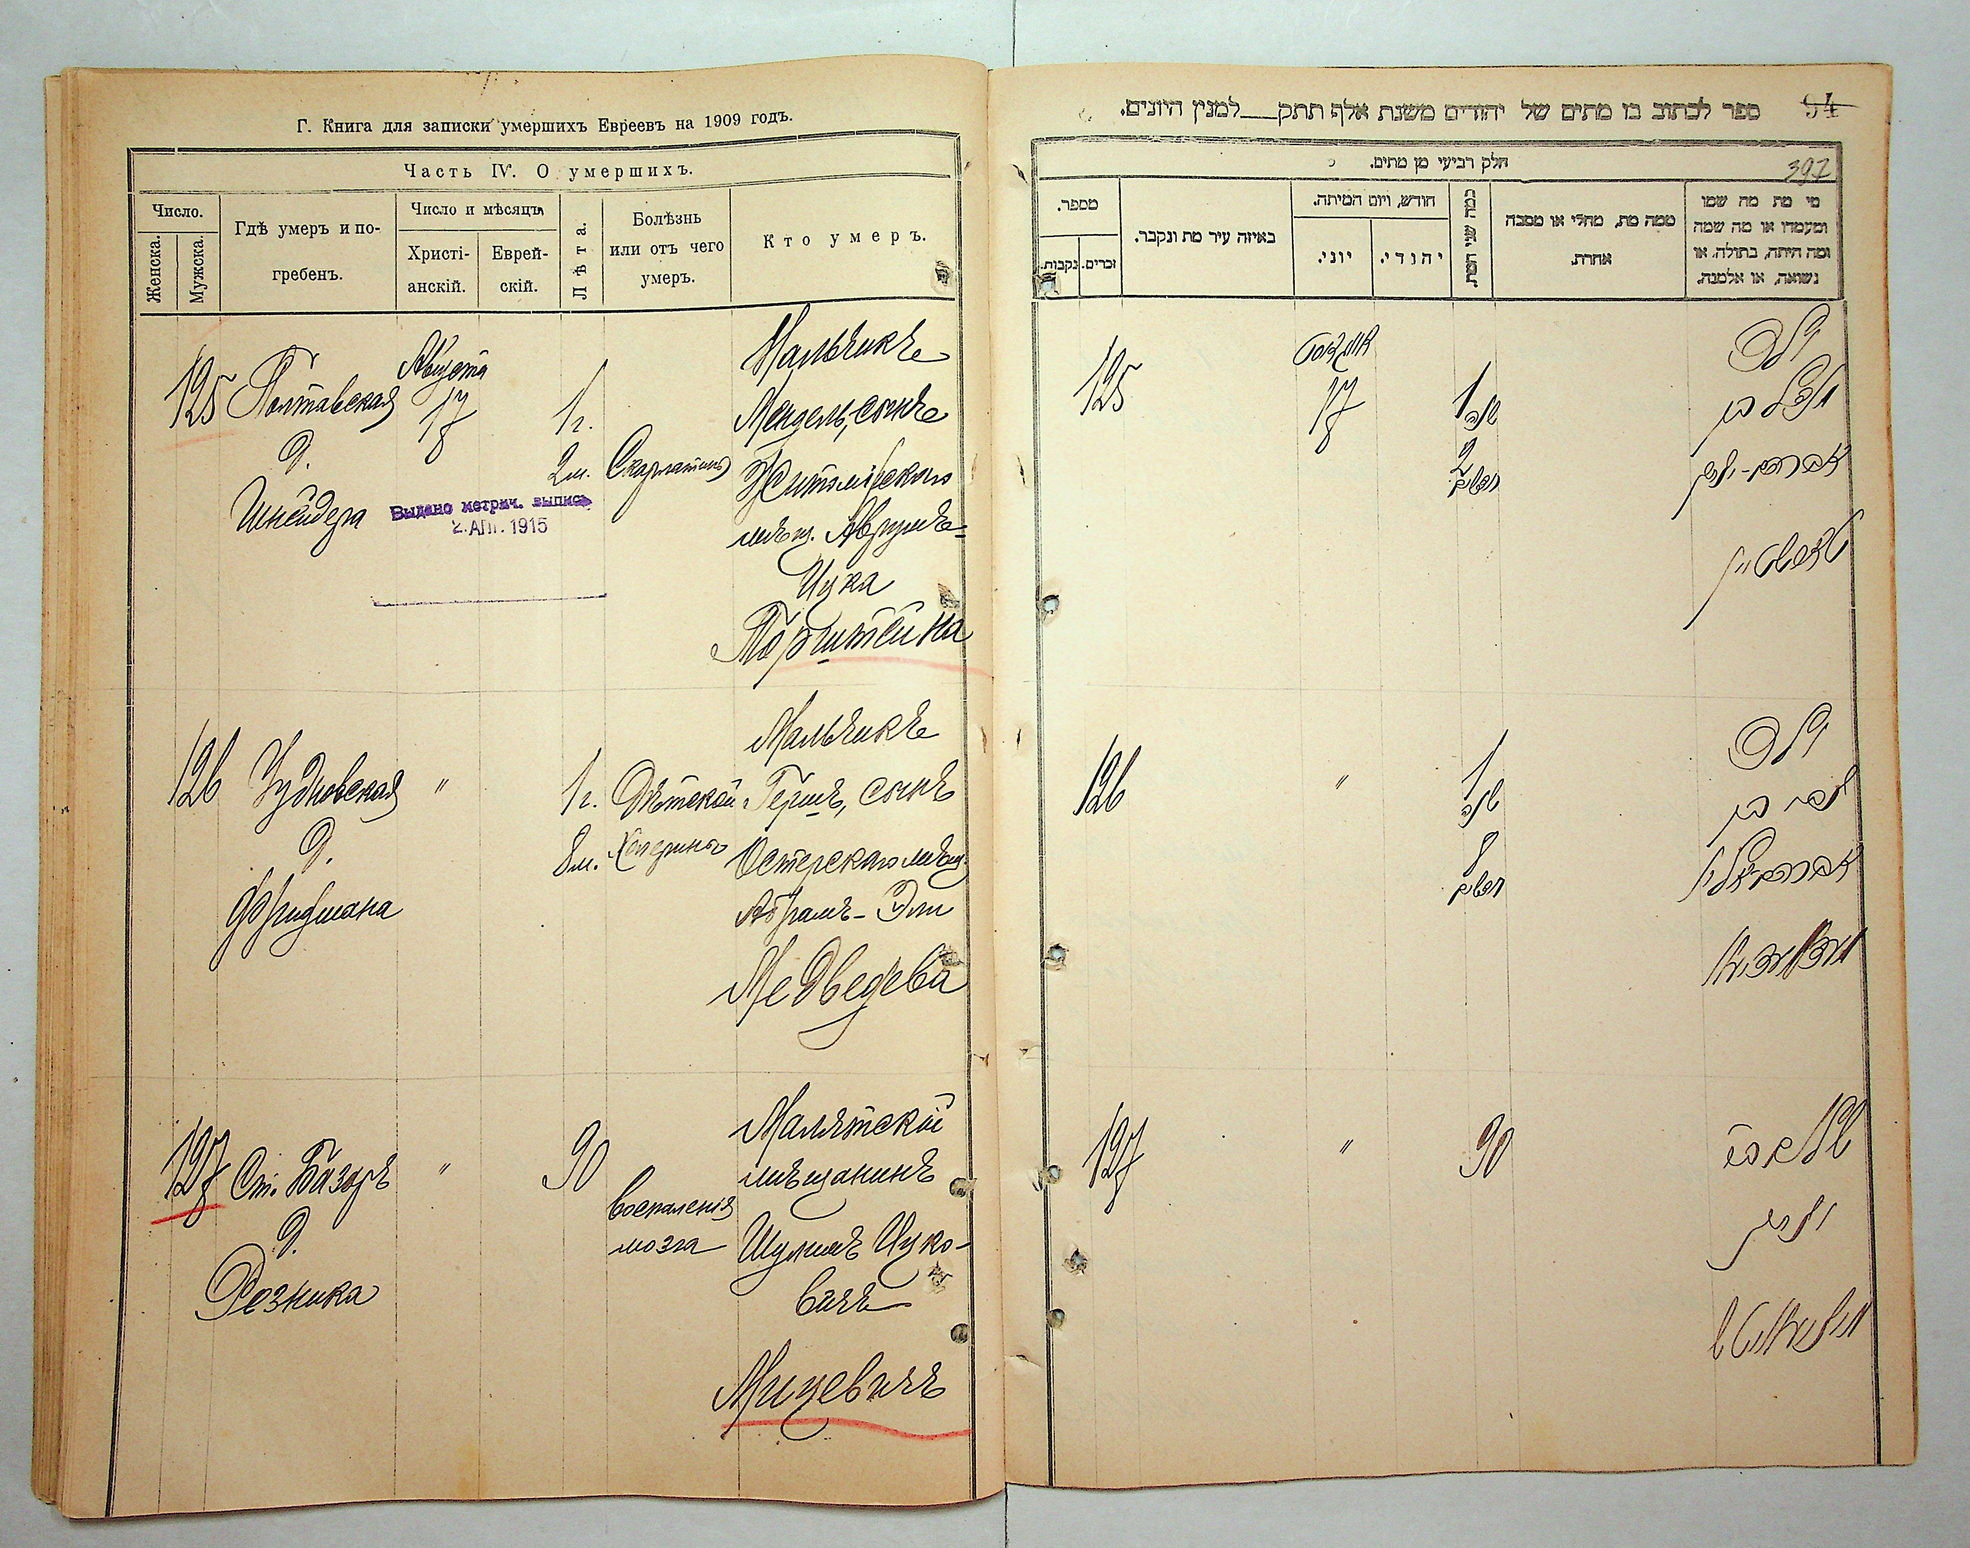 Г. Книга для записки умершихъ Евреевъ на 1909 годъ.
Часть IV. О умершихъ.
Число.
Женска.
Мужска.
Гдѣ умеръ и по-
гребенъ.
Число и мѣсяцъ
Христі-
анскій.
Еврей-
скій.
Лѣта.
Болѣзнь
или отъ чего
умеръ.
Кто умеръ.
125
Полтавская
д.
Шнейдера
Августа
17
1 г.
2 м.
Скарлатина
Мальчикъ
Мендель, сынъ
Житомірскаго
мѣщ. Аврумъ-
Ицка
Выдано метрич. выпись
2. АПР. 1915
126
Чудновская
д.
Фридмана
"
1 г.
8 м.
Дѣтской
Холерины
Мальчикъ
Гершъ, сынъ
Остерскаго мѣщ.
Абрамъ-Эли
Медведева
127
Ст. Базаръ
д.
Резника
"
90
Воспаленія
мозга
мѣщанинъ
Шулимъ Ицко-
вичъ
Мицевичъ
ספר לכתוב בו מתים של יהודים משנת אלף תתק___למנין היונים.
94
397
חלק רביעי מן מתים.
מספר.
נקבות.
זכרים.
באיזה עיר מת ונקבר.
חודש, ויום המיתה.
יוני.
יהודי.
כמה שני המת.
ממה מת, מחלי או מסבה
אחרת.
מי מת מה שמו
ומעמדו או מה שמה
ומה היתה, בתולה, או
נשואה, או אלמנה.
125
אווגוסט
17
1
שנה
2
חדשים
ילד
מענדל בן
אברהם-יצחק
126
"
1
שנה
8
חדשים
ילד
הירש בן
127
"
90
יצחק